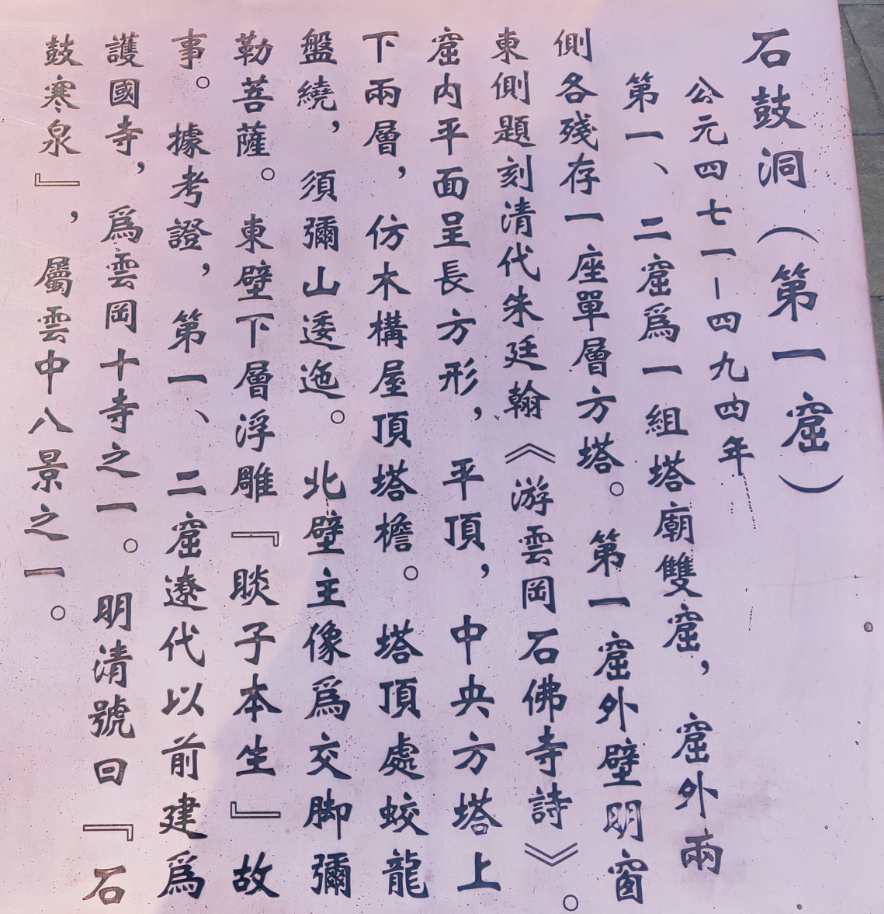 石鼓洞（第一窟）
公元四七一—四九四年
第一、二窟爲一組塔廟雙窟，窟外兩
側各殘存一座單層方塔。第一窟外壁明窗
東側題刻清代朱廷翰《游雲岡石佛寺詩》。
窟内平面呈長方形，平頂，中央方塔上
下兩層，仿木構屋頂塔檐。塔頂處蛟龍
盤繞，須彌山逶迤。北壁主像爲交脚彌
勒菩薩。東壁下層浮雕『睒子本生』故
事。據考證，第一、二窟遼代以前建爲
護國寺，爲雲岡十寺之一。明清號曰『石
鼓寒泉』，屬雲中八景之一。